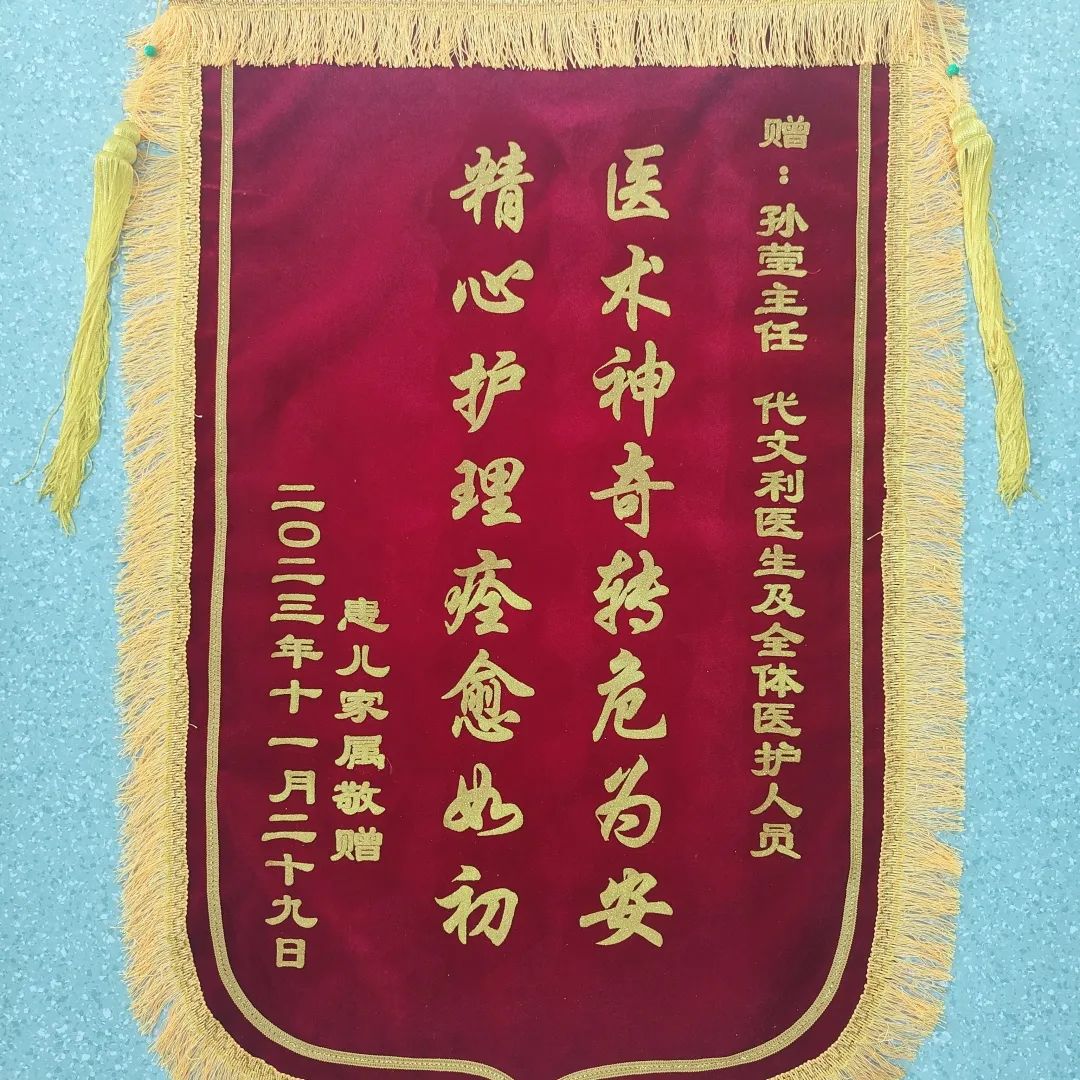 赠：孙莹主任 代文利医生及全体医护人员
医术神奇转危为安
精心护理痊愈如初
患儿家属敬赠
二〇二三年十一月二十九日